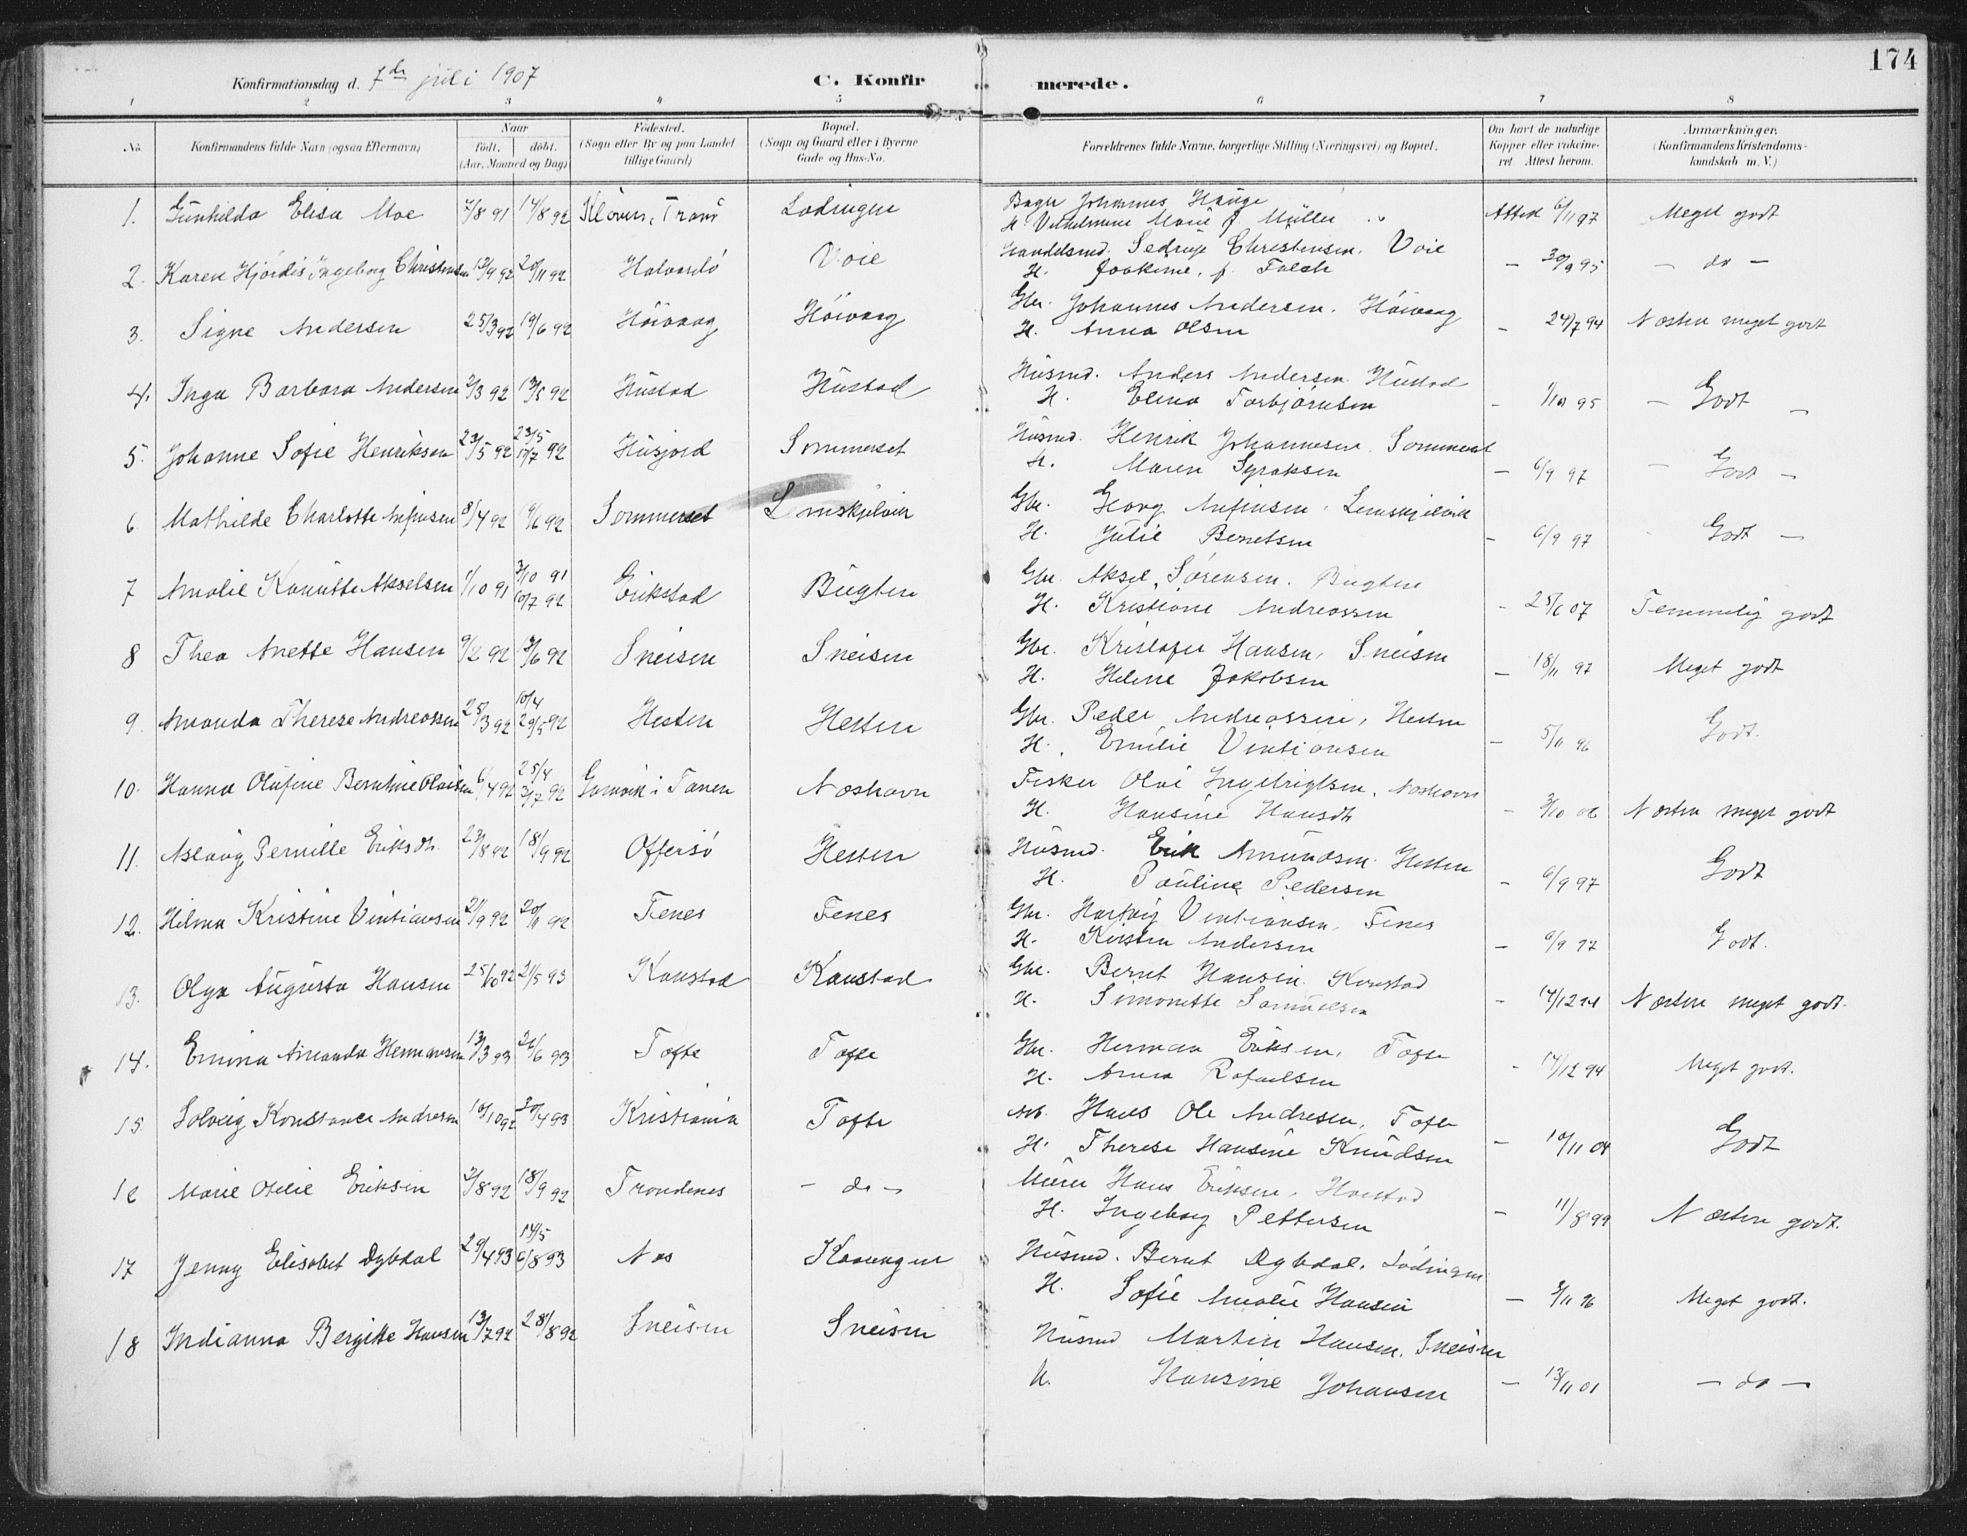 174
Konfirmationsdag d. 7de juli 1907 C. Konfir merede.
1 2 3 4 5 6 7 8
No. Konfirmandens fulde Navn (ogsaa Efternavn) Naar født. døbt. (Aar, Maaned og Dag) Fødested. (Sogn eller By og paa Landet tillige Gaard) Bopæl. (Sogn og Gaard eller i Byerne Gade og Hus-No. Forældrenes fulde Navne, borgerlige Stilling (Næringsvei) og Bopæl. Om havt de naturlige Kopper eller vakcineret. Attest herom. Anmærkninger. (Konfirmandens Kristendomskundskab m. V.)
1. Gunhilda Elisa Moe 7/8 91 14/8 92 Kløven, Tranø Lødingen Johannes Hauge Attest 6/11 97 Meget godt
H. Vilhelmine Marie f. Müller
2. Karen Hjørdis Ingeborg Christensen 13/9 92 20/11 92 Halvardø Voie Handelsmd. Sedrup Christensen, Voie — 30/9 95 — do —
H. Joakime, f. Falch
3. Signe Andersen 25/3 92 19/6 92 Høivaag Høivaag Gbr. Johannes Andersen, Høivaag - 24/7 94 Næsten meget godt
H. Anna Olsen
4. Inga Barbara Andersen 2/3 92 13/5 92 Hustad Hustad Husmd. Anders Andersen Hustad - 1/10 95 — Godt —
H. Elina Torbjørnsen
5. Johanne Sofie Henriksen 23/5 92 23/5 17/7 92 Husjord Sommerset Husmd. Henrik Johannesen, Sommerset — 6/9 97 — Godt —
H. Maren Syraksen
6 Mathilde Charlotte Anfinsen 8/4 92 19/6 92 Sommerset Lemskjelvik Gbr. Georg Anfinsen, Lemskjelvik - 6/9 97 Godt —
H. Julie Berntsen
7 Amalie Konutte Akselsen 1/10 91 3/10 91 10/7 92 Erikstad Bugten Gbr. Aksel Sørensen. Bugten - 25/6 07 Temmelig godt
H. Kristiane Andreassen
8 Thea Anette Hansen 9/2 92 13/6 92 Sneisen Sneisen Gbr. Kristofer Hansen, Sneisen — 18/11 97 Meget godt
H. Helene Jakobsen
9. Amanda Therese Andreassen 25/3 92 10/4 29/5 92 Hesten Hesten Gbr. Peder Andreassen, Hesten — 5/11 96 Godt.
H. Emilie Vintiansen
10. Hanna Olufine Berntine Olaisen 6/4 92 25/4 3/7 92 Gamvik i Tanen Næshavn Fisker Olai Ingebrigtsen, Næshavn - 3/10 06 Næsten meget godt
H. Hansine Hansdt
11. Aslaug Pernille Eriksdt. 23/8 92 18/9 92 Offersø Hesten Husmd. Erik Amundsen. Hesten — 6/9 97 Godt
H. Pauline Pedersen
12. Hilma Kristine Vintiansen 21/9 92 20/11 92 Fenes Fenes Gbr. Hartvig Vintiansen, Fenes — 6/9 97 Godt.
H. Kirsten Andersen
13. Olga Augusta Hansen 25/10 92 21/5 93 Kanstad Kanstad Gbr. Bernt Hansen. Kanstad - 14/12 94 Næsten meget godt.
H. Simonette Samuelsen
14. Emma Amanda Hermansen 13/3 93 26/6 93 Tofte Tofte Gbr. Herman Eriksen, Tofte - 14/12 94 Meget godt.
H. Anna Rafaelsen
15 Solveig Konstance Andresen 10/10 92 30/4 93 Kristiania Tofte Arb. Hans Ole Andresen, Tofte — 10/11 04 Godt
H. Therese Hansine Knudsen
16 Marie Otilie Eriksen 2/8 92 18/9 92 Trondenes — do — Murer Hans Eriksen, Harstad — 11/8 99 Næsten godt.
H. Ingeborg Pettersen
17 Jenny Elisabet Dybdal 29/4 93 14/5 6/8 93 Næs Kaaringen Husmd. Bernt Dybdal, Lødingen — 3/11 96 Meget godt.
H. Sofie Amalie Hansen
18 Indianna Bergitte Hansen 13/7 92 28/8 92 Sneisen Sneisen Husmd Martin Hansen, Sneisen — 13/11 01 — do —
H. Hansine Johansen